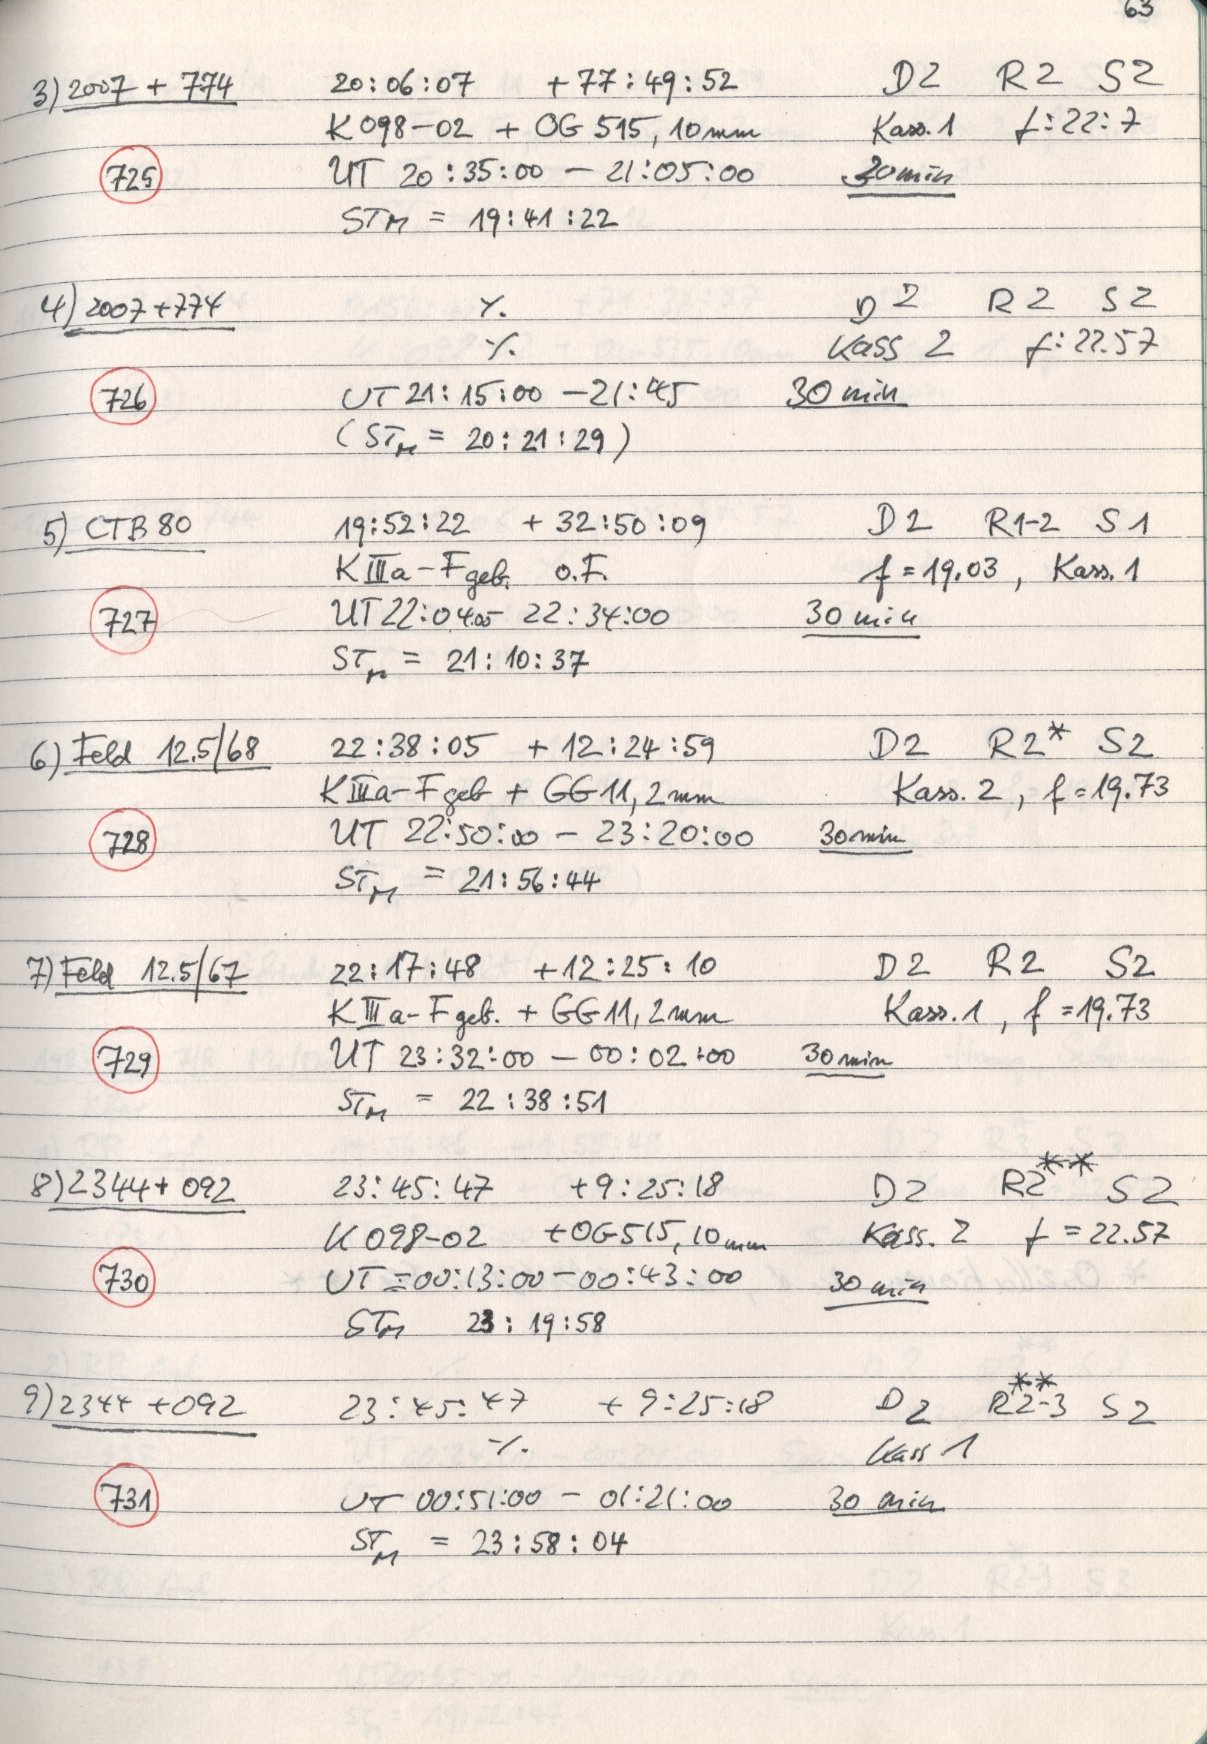 63
3) 2007 + 774 20:06:07 +77:49:52 D2 R2 S2
K098-02 + OG 515, 10mm Kass. 1 f:22:7
725 UT 20:35:00 - 21:05:00 30min
STM = 19:41:22
4) 2007+774 ./. D2 R2 S2
./. Kass 2 f:22.57
726 UT 21:15:00 - 21:45 30 min
(STM = 20:21:29)
5) CTB 80 19:52:22 + 32:50:09 D2 R1-2 S1
KIIIa-Fgeb. o.F. f = 19.03, Kass. 1
727 UT 22:04:00 - 22:34:00 30 min
STM = 21:10:37
6) Feld 12.5/68 22:38:05 + 12:24:59 D2 R2* S2
KIIIa-Fgeb + GG11, 2mm Kass. 2, f = 19.73
728 UT 22:50:00 - 23:20:00 30min
STM = 21:56:44
7) Feld 12.5/67 22:17:48 +12:25:10 D2 R2 S2
KIIIa-Fgeb. + GG11, 2mm Kass. 1, f = 19.73
729 UT 23:32:00 - 00:02:00 30min
STM = 22:38:51
8) 2344+092 23:45:47 +9:25:18 D2 R2** S2
K098-02 +OG515, 10mm Kass. 2 f = 22.57
730 UT=00:13:00 - 00:43:00 30 min
STM 23:19:58
9) 2344 +092 23:45:47 +9:25:18 D2 R2-3** S2
./. Kass 1
731 UT 00:51:00 - 01:21:00 30 min
STM = 23:58:04